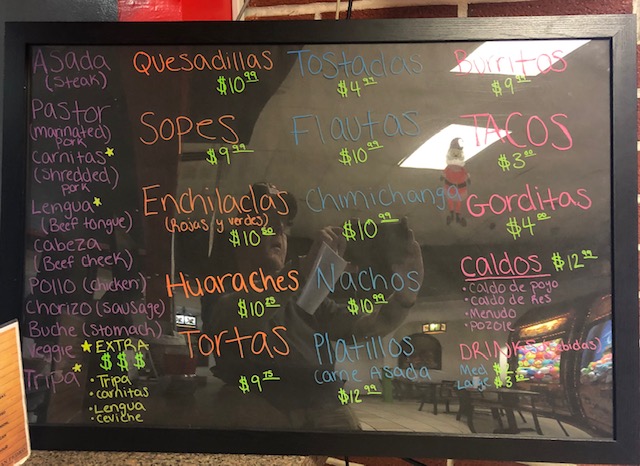 Asada
(steak)
Pastor
(marinated)
pork
Carnitas*
(shredded)
pork
Lengua*
(Beef tongue)
Cabeza
(Beef cheek)
Pollo (chicken)
Chorizo (sausage)
Buche (stomach)
Veggie
Tripa*
* EXTRA
$ $ $
• Tripa
• carnitas
• Lengua
• ceviche
Quesadillas
$10.99
Sopes
$9.99
Enchiladas
(Rojas y verdes)
$10.50
Huaraches
$10.25
Tortas
$9.75
Tostadas
$4.99
Flautas
$10.99
Chimichanga
$10.99
Nachos
$10.99
Platillos
Carne Asada
$12.99
Burritos
$9
TACOS
$3
Gorditas
$4.00
Caldos $12.99
• Caldo de poyo
• Caldo de Res
• Menudo
• Pozole
DRINKS (Bebidas)
Med $
Large $3